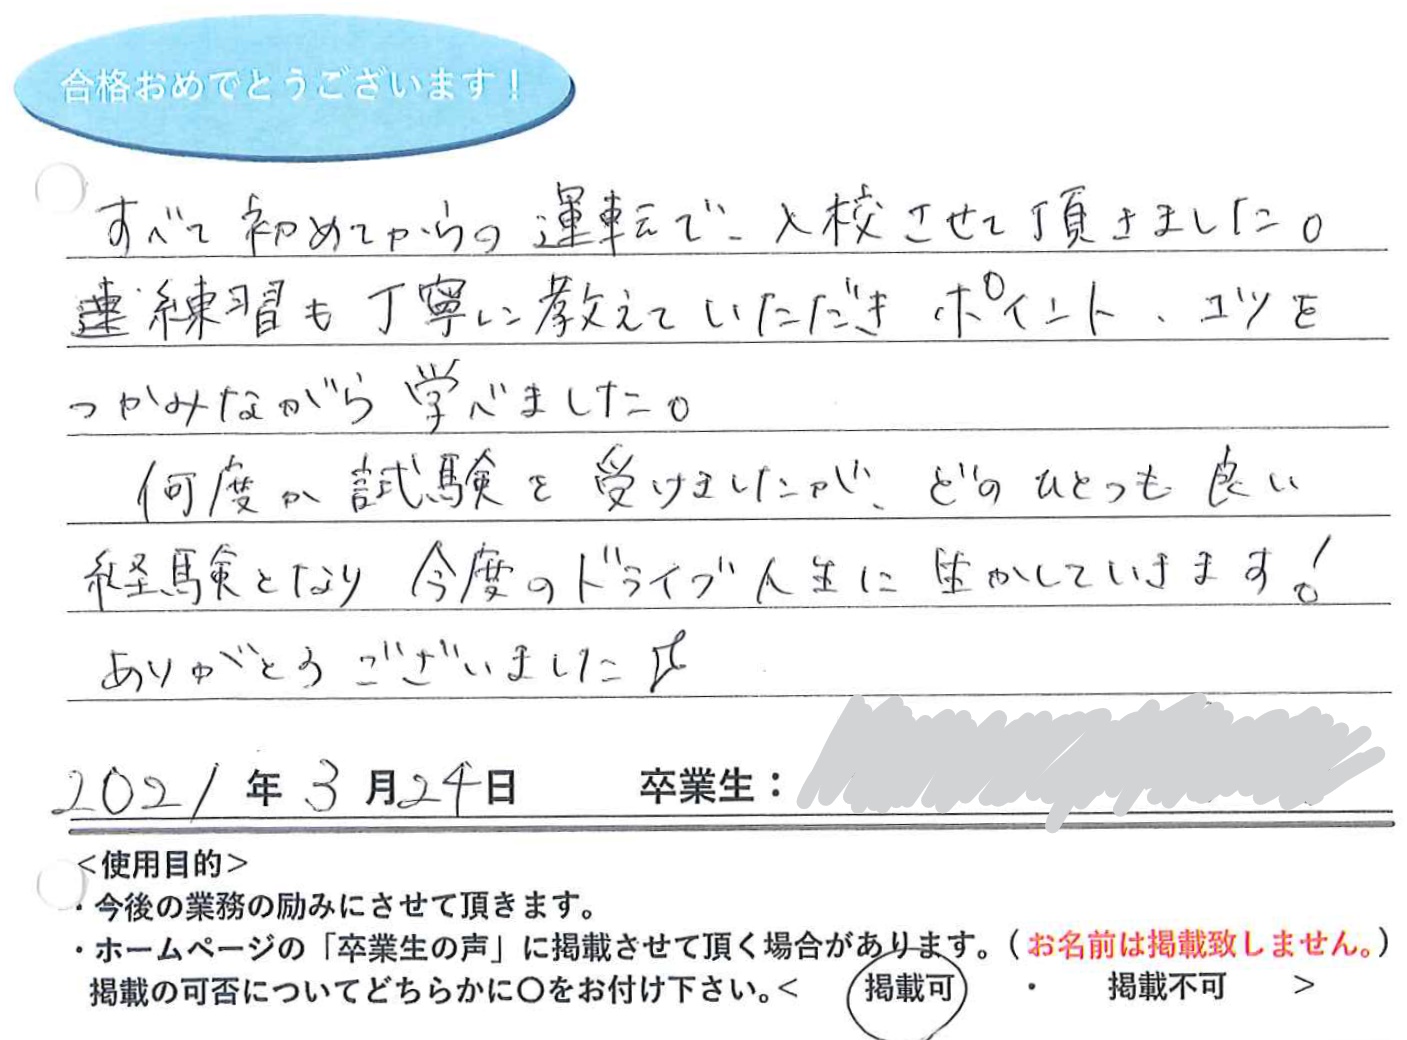 合格おめでとうございます！
すべて初めてからの運転で、入校させて頂きました。
練習も丁寧に教えていただきポイント、コツを
つかみながら学べました。
何度か試験を受けましたが、どのひとつも良い
経験となり今度のドライブ人生に生かしていきます！
ありがとうございました☆
2021年3月24日 卒業生：
＜使用目的＞
・今後の業務の励みにさせて頂きます。
・ホームページの「卒業生の声」に掲載させて頂く場合があります。（お名前は掲載致しません。）
掲載の可否についてどちらかに〇をお付け下さい。＜ 掲載可 ・ 掲載不可 ＞